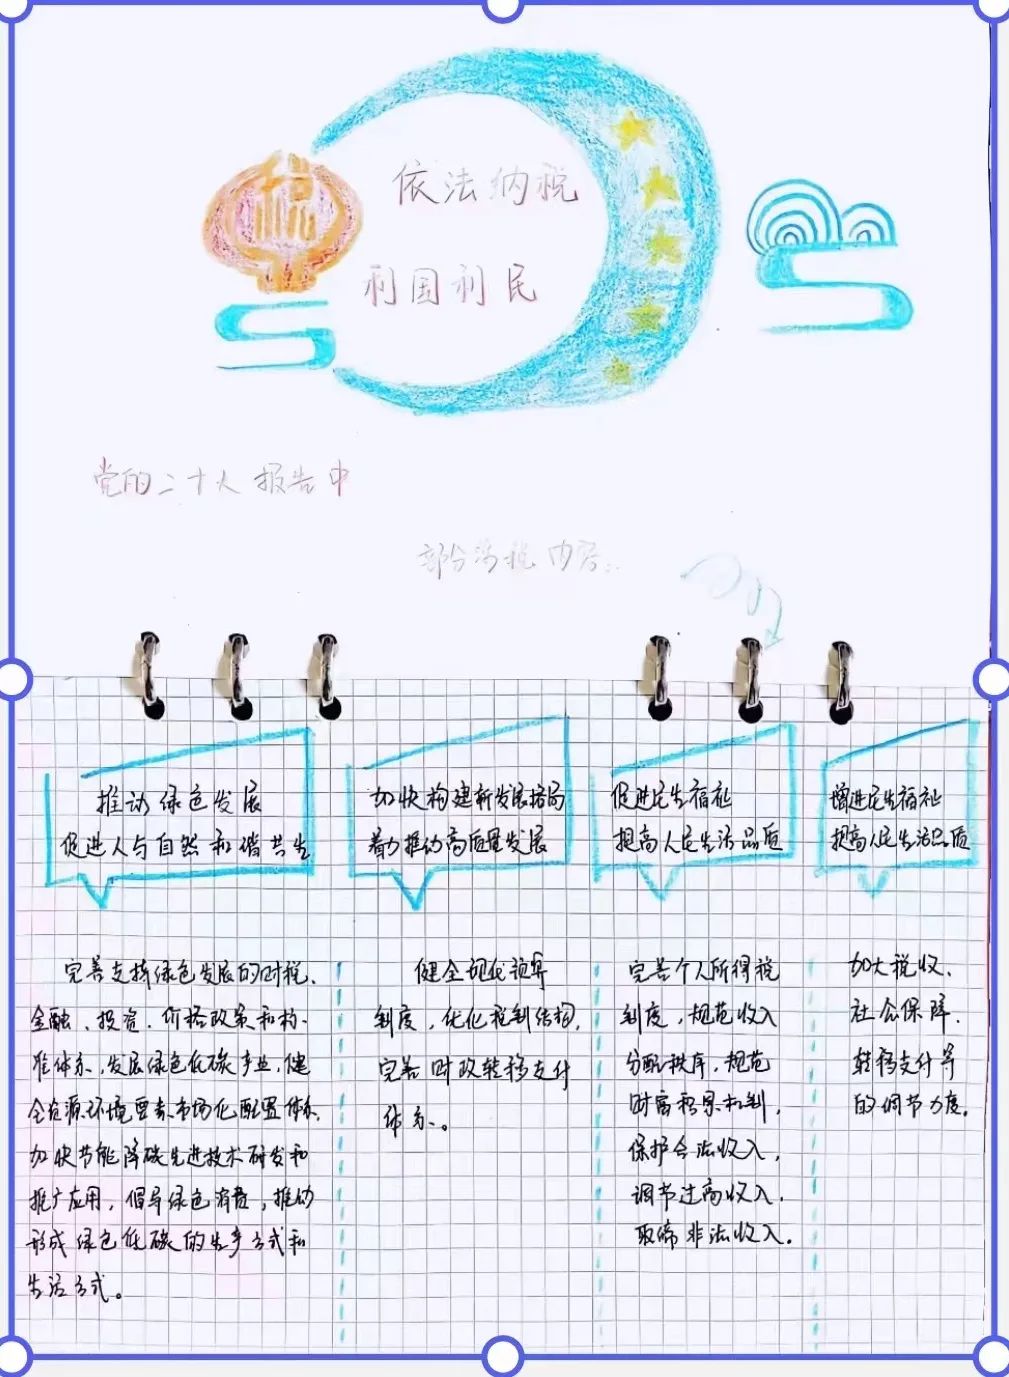 税
依法纳税
利国利民
党的二十大报告中
部分涉税内容..
推动绿色发展
促进人与自然和谐共生
加快构建新发展格局
着力推动高质量发展
促进民生福祉
提高人民生活品质
增进民生福祉
提高人民生活品质
完善支持绿色发展的财税、
金融、投资、价格政策和标
准体系,发展绿色低碳产业,健
全资源环境要素市场化配置体系,
加快节能降碳先进技术研发和
推广应用,倡导绿色消费,推动
形成绿色低碳的生产方式和
生活方式。
健全现代预算
制度,优化税制结构,
完善财政转移支付
体系。
完善个人所得税
制度,规范收入
分配秩序,规范
财富积累机制,
保护合法收入,
调节过高收入,
取缔非法收入.
加大税收、
社会保障、
转移支付等
的调节力度.